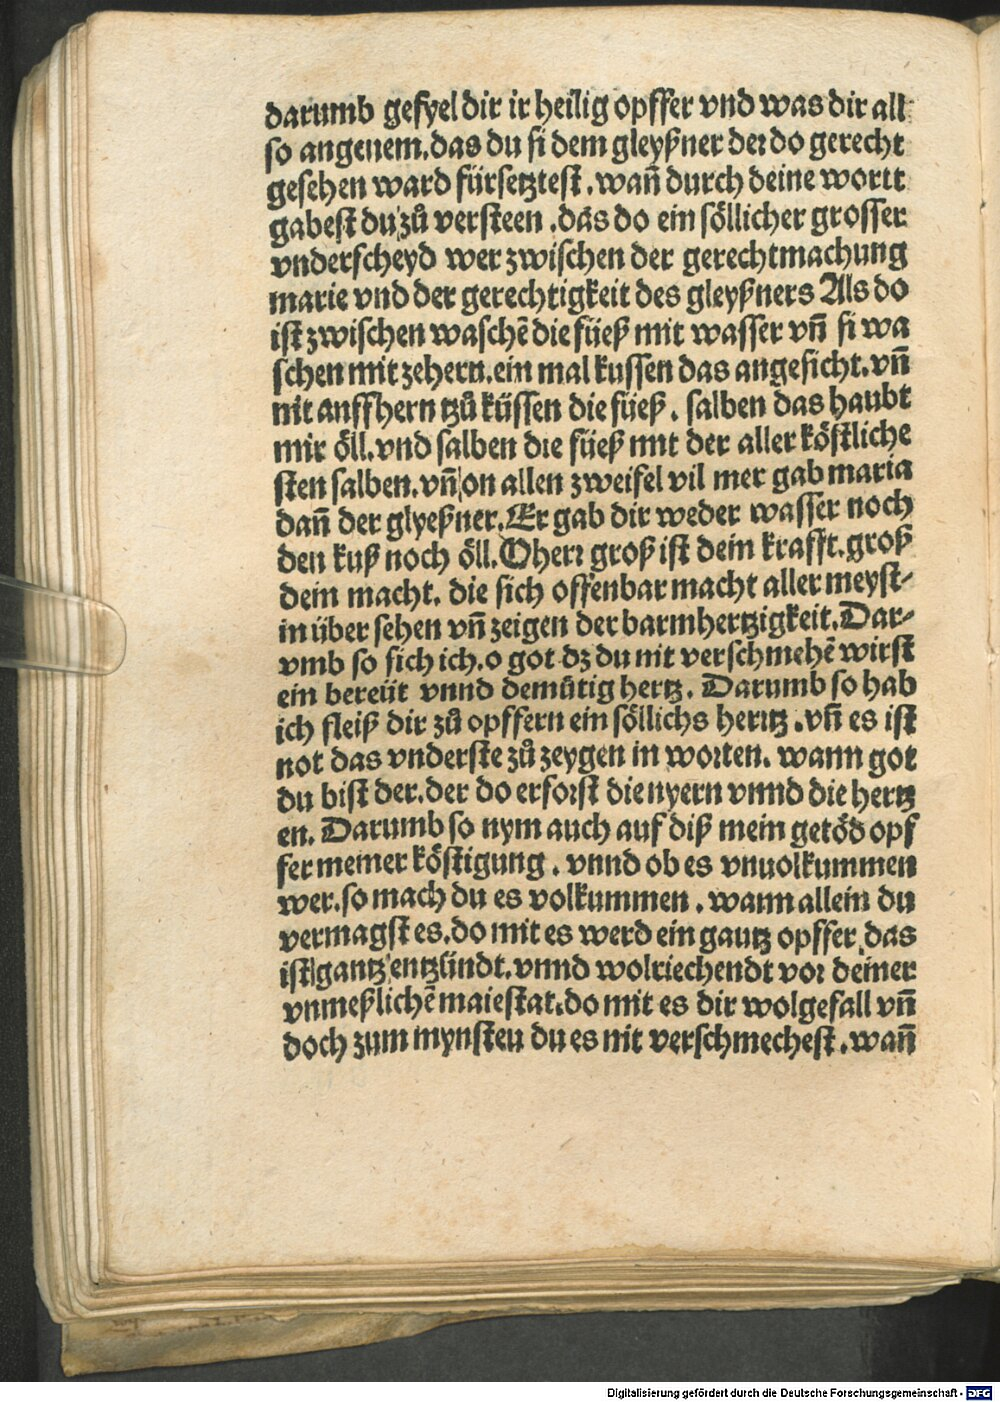 darumb gefyel dir ir heilig opffer vnd was dir all
so angenem.das du si dem gleyßner der do gerecht
gesehen ward fürsetztest.wañ durch deine wortt
gabest du zů versteen.das do ein söllicher grosser
vnderscheyd wer zwischen der gerechtmachung
marie vnd der gerechtigkeit des gleyßners Als do
ist zwischen waschē die füeß mit wasser vñ si wa
schen mit zehern.ein mal kussen das angesicht.vñ
nit anffhern tzů küssen die füeß. salben das haubt
mir öll.vnd salben die füeß mit der aller köstliche
sten salben.vñ on allen zweifel vil mer gab maria
dañ der glyeßner.Er gab dir weder wasser noch
den kuß noch öll.Oherr groß ist dein krafft.groß
dein macht. die sich offenbar macht aller meyst-
in über sehen vñ zeigen der barmhertzigkeit.Dar-
vmb so sich ich.o got dz du nit verschmehē wirst
ein bereüt vnnd demůtig hertz. Darumb so hab
ich fleiß dir zů opffern ein söllichs hertz.vñ es ist
not das vnderste zů zeygen in worten. wann got
du bist der.der do erforst die nyern vnnd die hertz
en. Darumb so nym auch auf diß mein getöd opf
fer meiner köstigung. vnnd ob es vnuolkummen
wer.so mach du es volkummen. wann allein du
vermagst es.do mit es werd ein gautz opffer das
ist gantz entzlindt.vnnd wolriechendt vor deiner
vnmeßlichē maiestat.do mit es dir wolgefall vñ
doch zum mynsteu du es nit verschmechest.wañ
Digitalisierung gefördert durch die Deutsche Forschungsgemeinschaft - DFG